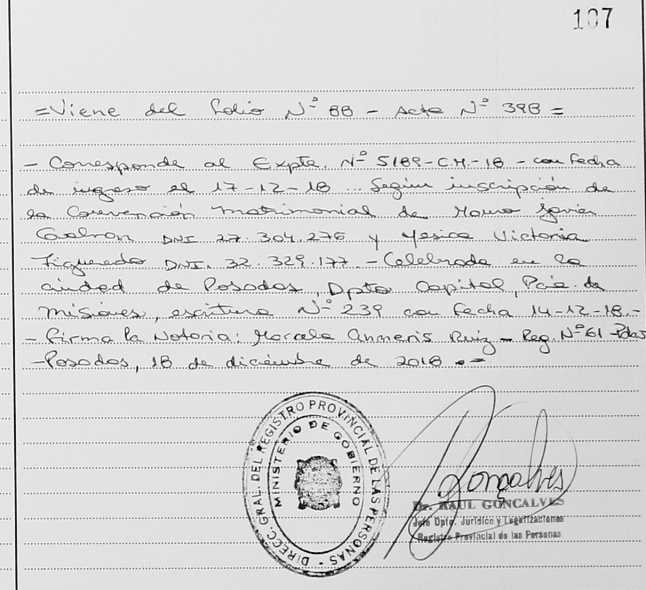 107
=Viene del folio Nº 88 - Acta Nº 398 =
- Corresponde al Expte. Nº 5189-C.M.-18 - con fecha
de ingreso el 17-12-18 .. Según inscripción de
la Convención matrimonial de Mauro Javier
Galeron DNI 27.304.276 y Yesica Victoria
Figueredo DNI. 32.329.177. - Celebrada en la
ciudad de Posadas, Dpto Capital, Pcia. de
misiones, escritura Nº 239 con fecha 14-12-18.-
- Firma la Notoria: Marcela Anneris Ruiz - Reg. Nº 61 - Pdas
-Posadas, 18 de diciembre de 2018 .-
DIRECC. GRAL. DEL REGISTRO PROVINCIAL DE LAS PERSONAS -
MINISTERIO DE GOBIERNO
Gonçalves
Dr. RAUL GONCALVES
Jefe Dpto. Jurídico y Legalizaciones
Registro Provincial de las Personas